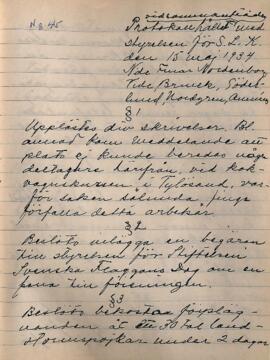 No 45
vid sammanträde
Protokoll hållet med
styrelsen för S. L. K.
den 15 maj 1934
Nde Einar Nordenborg
Söder-
lund, Nordgren,
§ 1
Upplästes div skrivelser. Bl
annat kom meddelande att
plats ej kunde beredas någe
deltagare härifrån, ved kok-
vagnskursen i Tylösand, var-
för saken salunda fingo
förfalla detta arbeker.
§ 2
Beslöts villägga en begäran
till styrelsen för Stiftelsen
Svenska Flaggans Dag om en
fana till föreningen.
§ 3
Beslöts bekosta förpläg-
nanden åt ett 30 tal land-
stormspojkar under 2 dagar